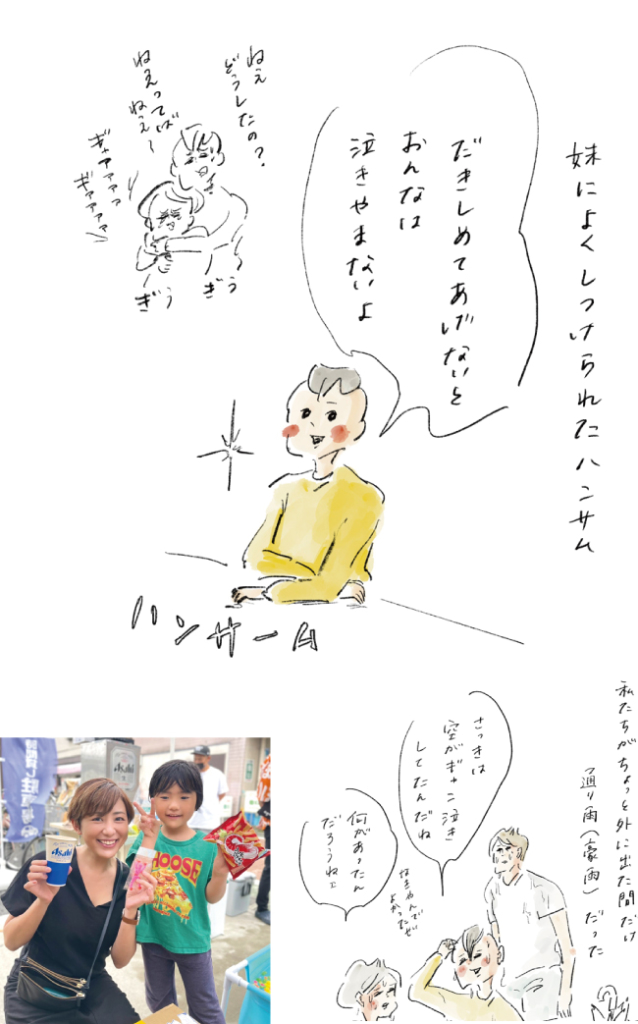 妹によくしつけられたハンサム
だきしめてあげないと
おんなは
泣きやまないよ
ねぇ
どうしたの?
ねえってば
ねぇ〜
ギャアァァァ
ギァァァァ
ぎう
ぎう
ハンサーム
私たちがちょっと外に出た間だけ
通り雨(豪雨)だった
さっきは
空がギャン泣き
してたんだね
何があったん
だろうねぇ
なきやんで
よかったぜ
Asahi
Asahi
CHOOSE